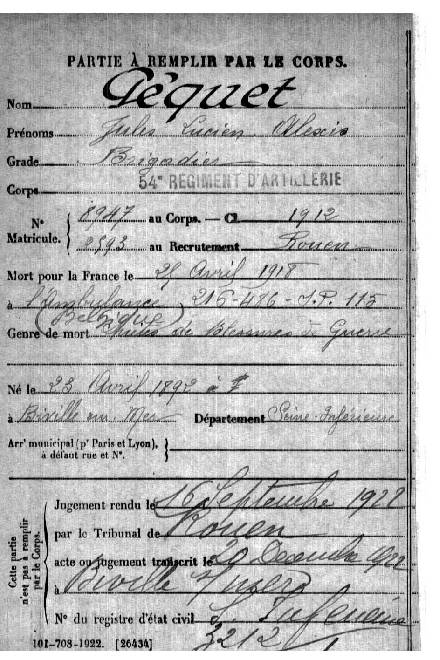 PARTIE À REMPLIR PAR LE CORPS.
Nom Géquet
Prénoms Jules Lucien Alexis
Grade Brigadier
Corps 54e REGIMENT D'ARTILLERIE
N° Matricule. { 8947 au Corps. — Cl 1912
2893 au Recrutement Rouen
Mort pour la France le 25 Avril 1918
à l'Ambulance 216-486-S.P. 115
(Belgique)
Genre de mort Suites de Blessures de Guerre
Né le 23 Avril 1892
à Biville sur Mer Département Seine-Inférieure
Arrt municipal (pr Paris et Lyon), à défaut rue et N°. }
Cette partie n'est pas à remplir par le Corps.
Jugement rendu le 16 Septembre 1922
par le Tribunal de Rouen
acte ou jugement transcrit le 20 Decembre 1922
à Biville s/mer
N° du registre d'état civil S. Inferieure
3212
101-708-1922. [26434]